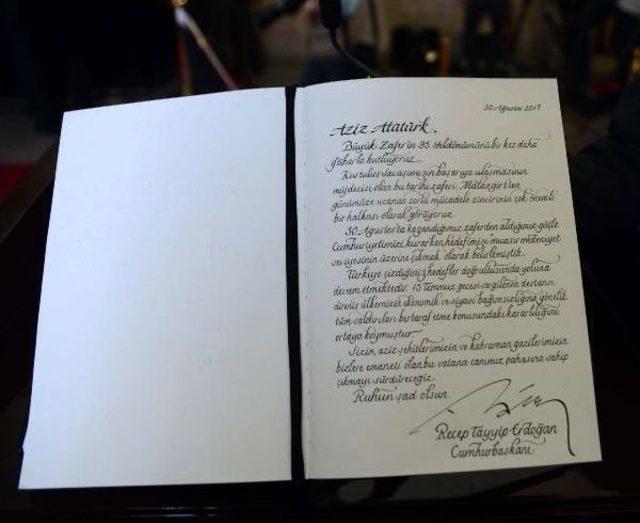 30 Ağustos 2017
Aziz Atatürk,
Büyük Zafer'in 95. yıldönümünü bir kez daha
iftiharla kutluyoruz.
Kurtuluş Savaşımızın başarıya ulaşmasının
müjdecisi olan bu tarihi zaferi, Malazgirt'ten
günümüze uzanan zorlu mücadele zincirinin çok önemli
bir halkası olarak görüyoruz.
30 Ağustos'ta kazandığımız zaferden aldığımız güçle
Cumhuriyetimizi kurarken hedefimizi "muasır medeniyet
seviyesinin üzerine çıkmak" olarak belirlemiştik.
Türkiye çizdiğiniz hedefler doğrultusunda yoluna
devam etmektedir. 15 Temmuz gecesi sergilenen destansı
duruş ülkemizin ekonomik ve siyasi bağımsızlığına yönelik
tüm saldırıları bertaraf etme konusundaki kararlılığını
ortaya koymuştur.
Sizin, aziz şehitlerimizin ve kahraman gazilerimizin
bizlere emaneti olan bu vatana canımız pahasına sahip
çıkmayı sürdüreceğiz.
Ruhun şad olsun.
Recep Tayyip Erdoğan
Cumhurbaşkanı